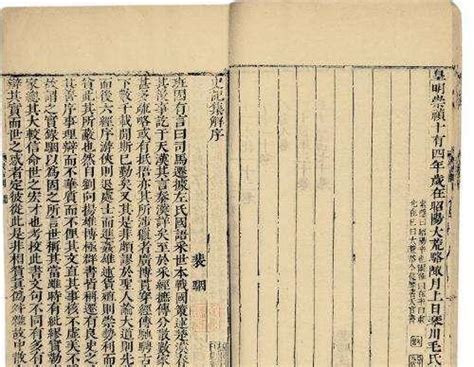 皇明崇禎十有四年歲在昭陽大荒駱陬月上日琴川毛氏
史記集解序
裴駰
班固有言曰司馬遷據左氏國語采世本戰國策述楚漢春
其後事訖于天漢其言秦漢詳矣至於采經摭傳分散數家
甚多疏略或有抵捂亦其所涉獵者廣博貫穿經傳馳騁古
下數千載間斯已勤矣又其是非頗謬於聖人論大道則先
而後六經序遊俠則退處士而進姦雄述貨殖則崇勢利而
賤此其所蔽也然自劉向揚雄博極羣書皆稱遷有良史之
其善序事理辯而不華質而不俚其文直其事核不虛美不
故謂之實錄駰以為固之所言世稱其當雖時有紕繆
家總其大較信命世之宏才也考校此書文句不同有多有
辯其實而世之惑者定彼從此是非相貿真偽舛雜故中散